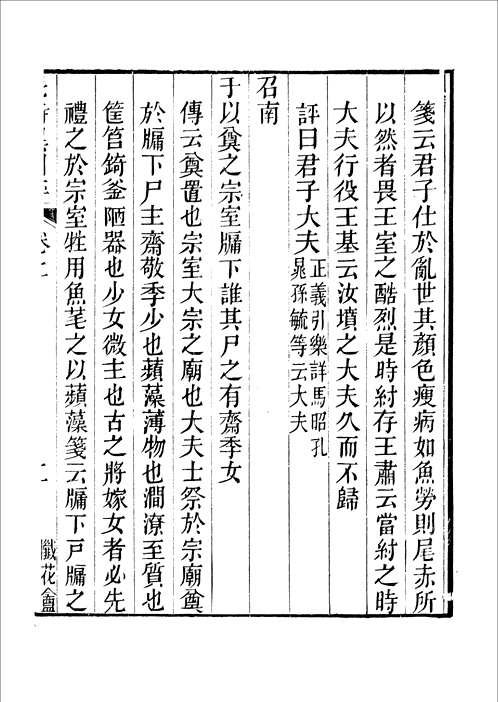 箋云君子仕於亂世其顏色瘦病如魚勞則尾赤所
以然者畏王室之酷烈是時紂存王肅云當紂之時
大夫行役王基云汝墳之大夫久而不歸
評曰君子大夫正義引樂詳馬昭孔
晁孫毓等云大夫
召南
于以奠之宗室牖下誰其尸之有齋季女
傳云奠置也宗室大宗之廟也大夫士祭於宗廟奠
於牖下尸主齋敬季少也蘋藻薄物也澗潦至質也
筐筥錡釜陋器也少女微主也古之將嫁女者必先
禮之於宗室牲用魚芼之以蘋藻箋云牖下戸牖之
卷上
二